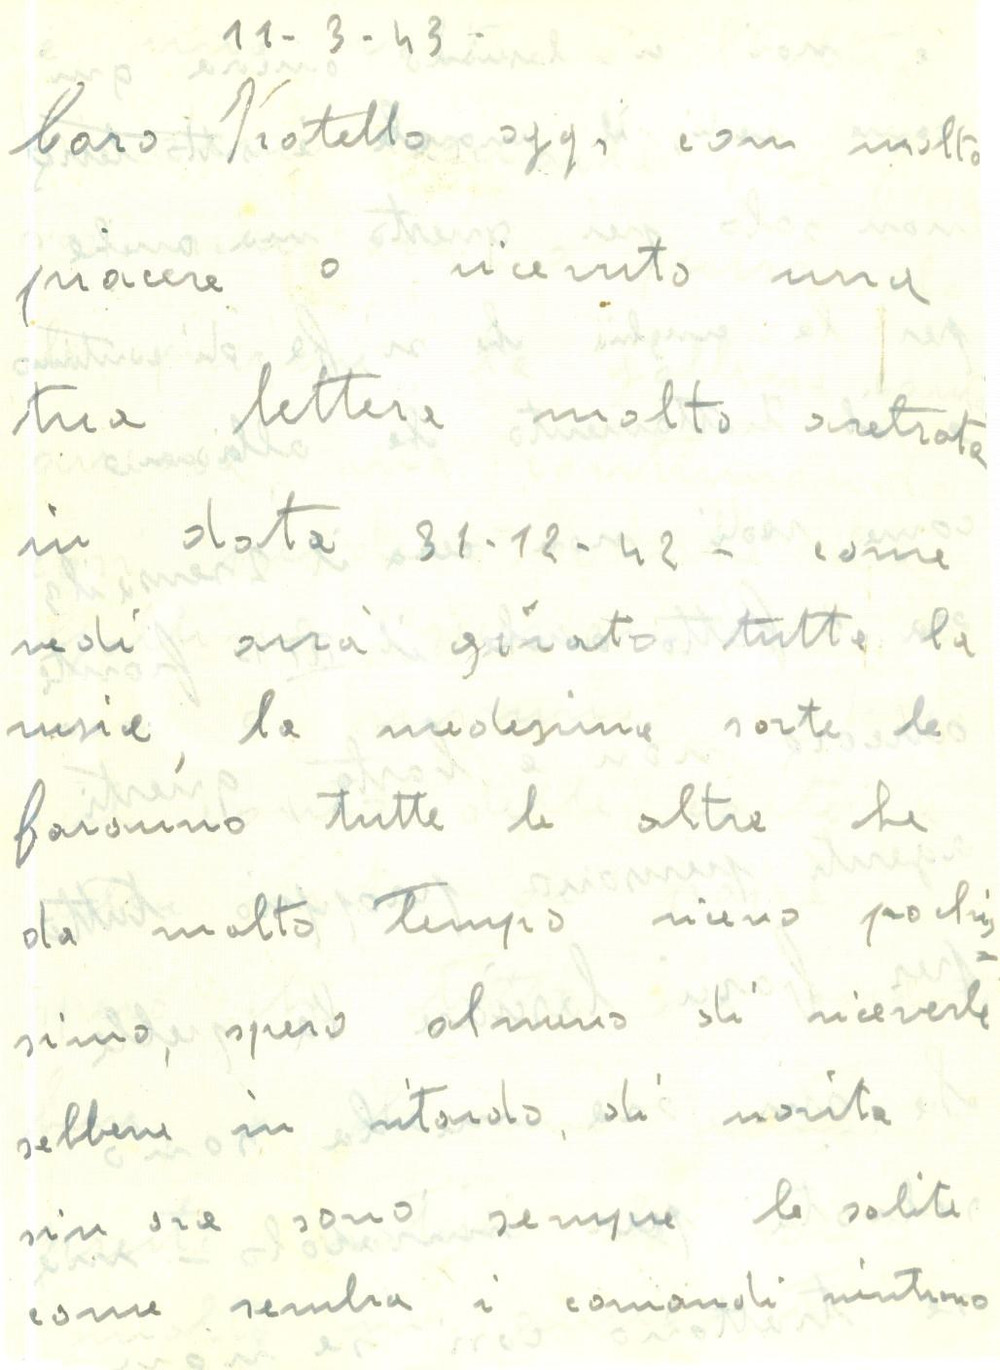 11-3-43-
Caro Fratello oggi con molto
piacere o ricevuto una
tua lettera molto aretrata
in data 31-12-42 - come
vedi avrà girato tutta la
rusia, la medesima sorte la
faranno tutte le altre che
da molto tempo ricevo pochis
simo, spero almeno di riceverle
sebbene in ritardo, di novità
sin ora sono sempre le solite
come sembra i comandi